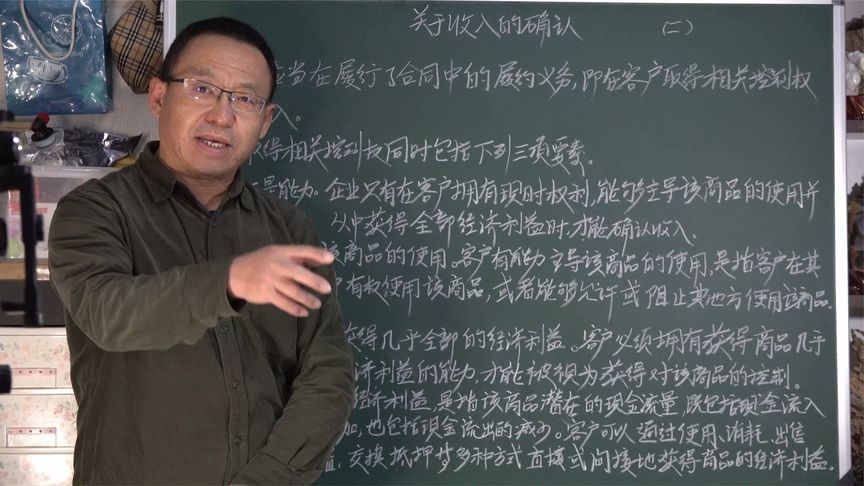 关于收入的确认 (二)
应当在履行了合同中的履约义务,即在客户取得相关控制权
入。
取得相关控制权同时包括下列三项要素。
是能力。企业只有在客户拥有现时权利,能够主导该商品的使用并
从中获得全部经济利益时,才能确认收入.
该商品的使用。客户有能力主导该商品的使用,是指客户在其
有权使用该商品,或者能够允许或阻止其他方使用该商品.
获得几乎全部的经济利益。客户必须拥有获得商品几乎
济利益的能力,才能被视为获得对该商品的控制。
经济利益,是指该商品潜在的现金流量,既包括现金流入
加,也包括现金流出的减少。客户可以通过使用、消耗、出售
交换、抵押等多种方式直接或间接地获得商品的经济利益.